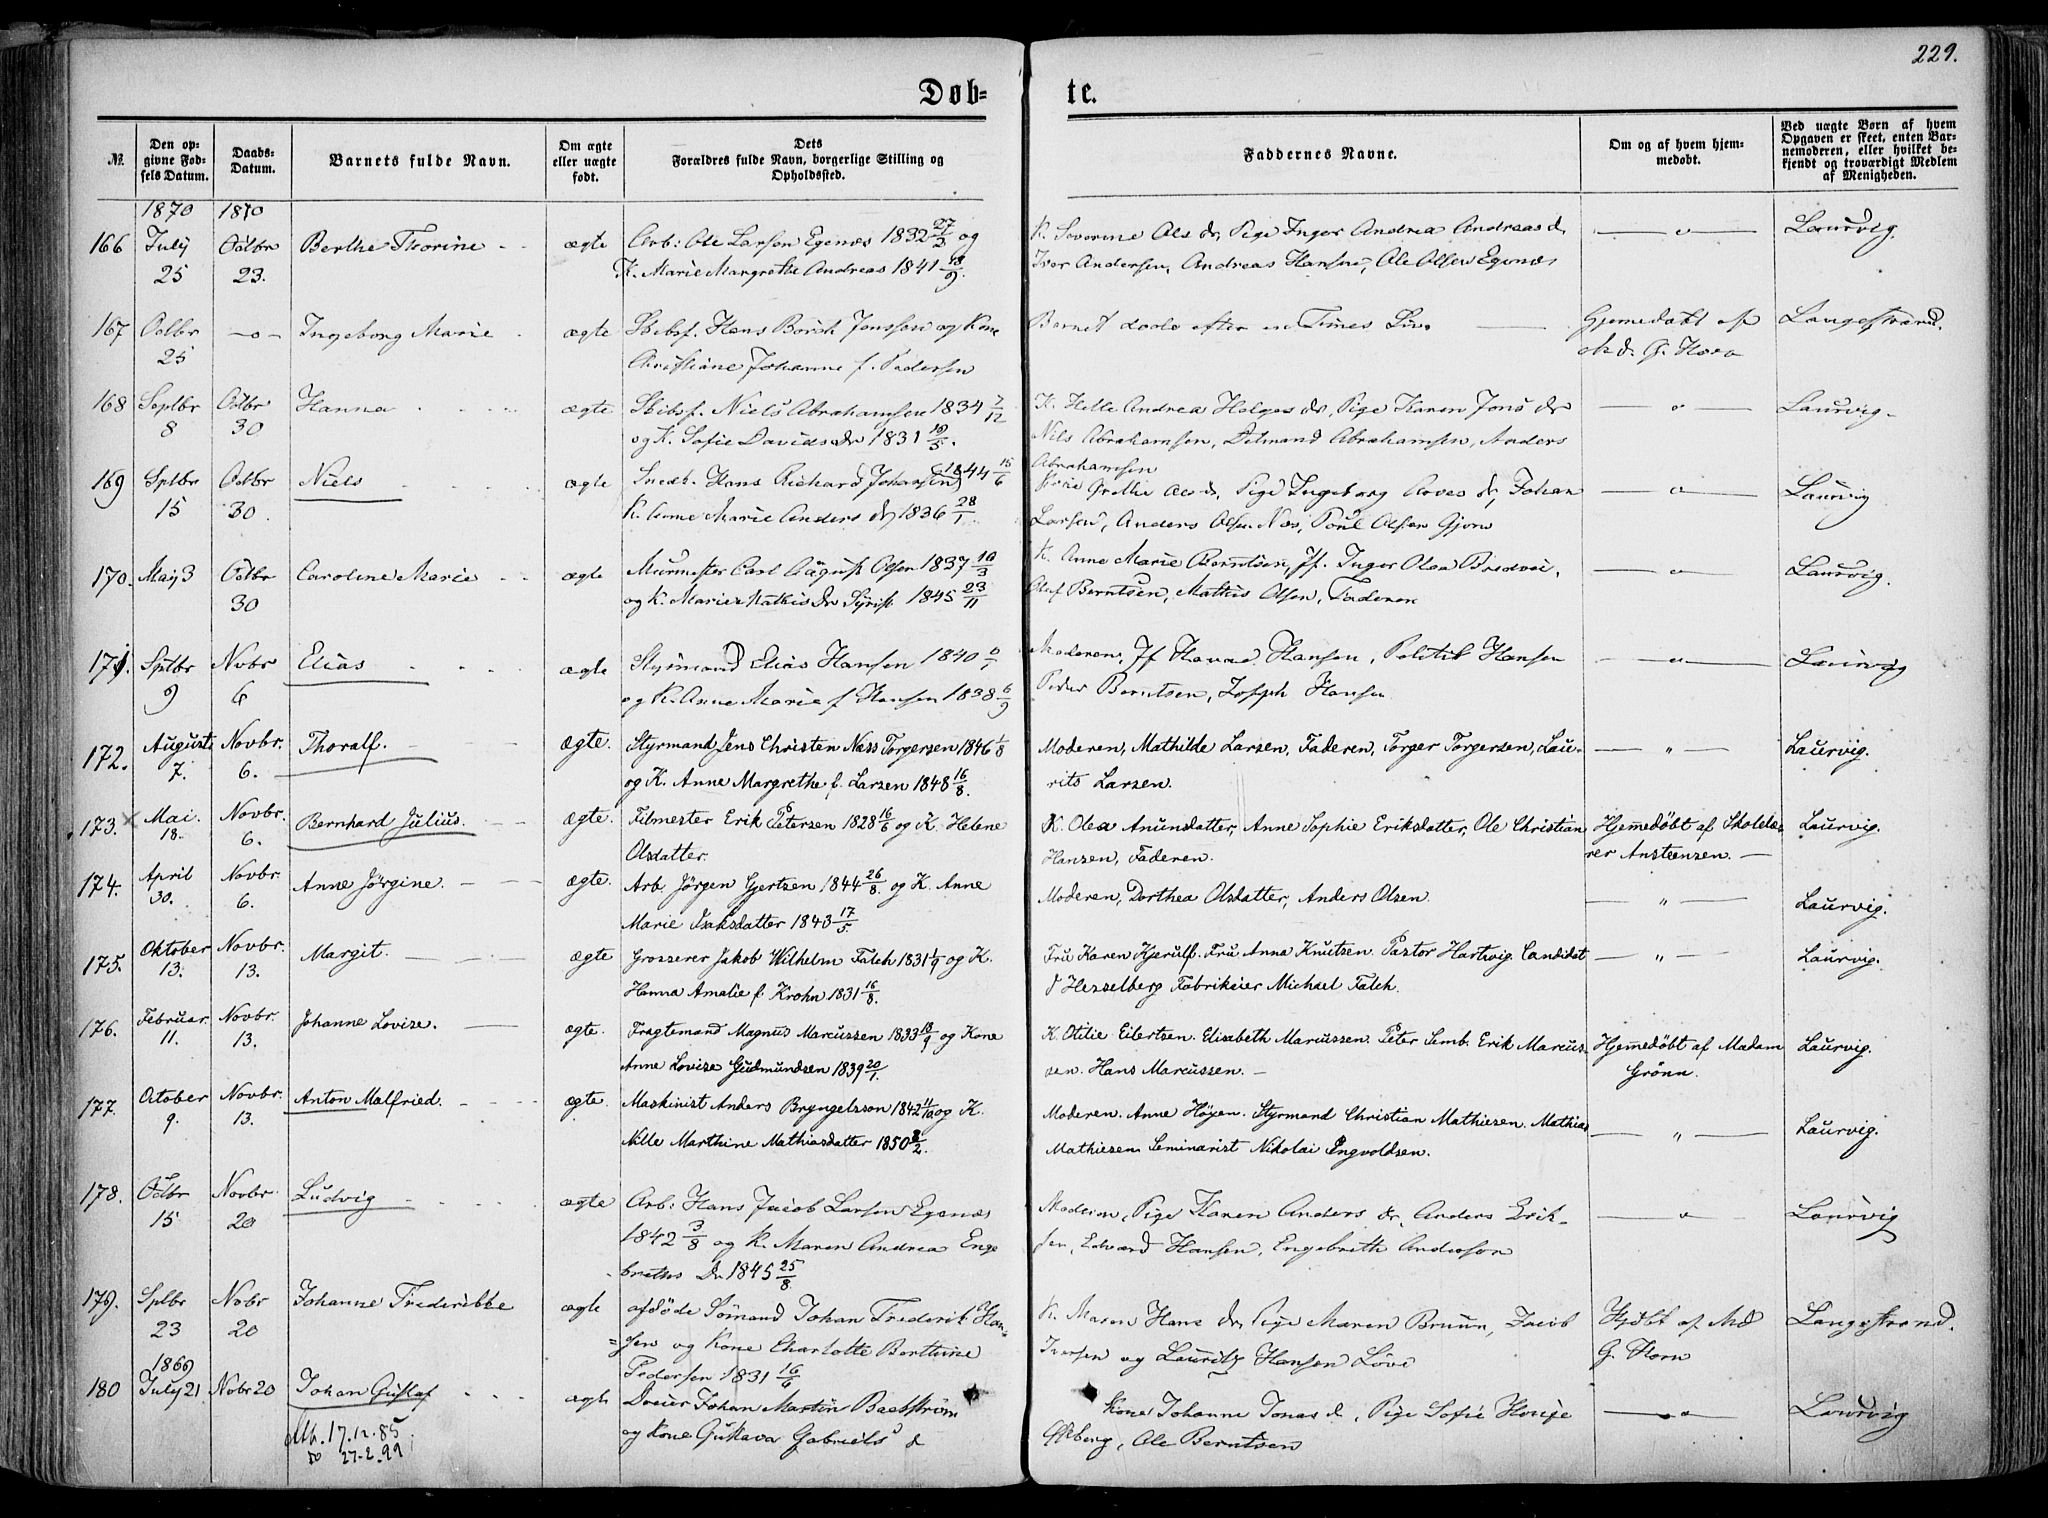 229.
Døb-
te.
№
Den op-
givne Fød-
sels Datum.
Daabs-
Datum.
Barnets fulde Navn.
Om ægte
eller uægte
født.
Dets
Forældres fulde Navn, borgerlige Stilling og
Opholdssted.
Faddernes Navne.
Om og af hvem hjem-
medøbt.
Ved uægte Børn af hvem
Opgaven er skeet, enten Bar-
nemoderen, eller hvilket be-
kjendt og troværdigt Medlem
af Menigheden.
1870 1870
166 July 25 Octbr 23. Berthe Thorine ægte
Arb: Ole Larsen Egenæs 1832 27/3 og
K. Marie Margrethe Andreas 1841 18/9.
K. Severine Ols dr, Pige Inger Andrea Andreas d.
Iver Andersen, Andreas Hansen, Ole Olsen Egenæs
— " — Laurvig.
167 Octbr 25 —"— Ingeborg Marie ægte
Skibsf. Hans Borch Jonssen og Kone
Christiane Johanne f. Pedersen
Barnet døde efter en Times Liv.
Hjemedøbt af
Md. G. Horn
Langestrand.
168 Septbr 8 Octbr 30 Hanna ægte
Skibsf. Niels Abrahamsen 1834 7/12
og K. Sofie Davids dr 1831 19/5.
K. Helle Andrea Helges dr, Pige Karen Jens dr
Nils Abrahamsen, Detmand Abrahamsen, Anders
Abrahamsen
— " — Laurvig.
169 Sptbr 15 Octbr 30. Niels ægte
Snedk. Hans Richard Johansen 1844 15/6
K. Anne Marie Anders dr 1836 28/1.
Grethe Ols d., Pige Ingeborg Aoves dr, Johan
Larsen, Anders Olsen Næs, Poul Olsen Gjone
— " — Laurvig
170. Maij 3 Octbr 30 Caroline Marie ægte
Murmester Carl August Olsen 1837 10/3
og K. Marie Mathis dr Syrist 1845 23/11
K. Anne Marie Berntsen, Jf. Inger Olea Bredvei,
Oluf Berntsen, Mathis Olsen, Faderen
— " — Laurvig.
171. Sptbr 9 Novbr 6 Elias ægte
Styrmand Elias Hansen 1840
og K. Anne Marie f. Hansen 1838 6/9
Moderen, Jf Hanna Hansen, Politib Hansen
Peder Berntsen, Joseph Hansen
— " — Laurvig
172. Augusti 7. Novbr. 6. Thoralf. ægte.
Styrmand Jens Christen Næss Torgersen 1846 1/8
og K. Anne Margrethe f. Larsen 1848 16/8.
Moderen, Mathilde Larsen, Faderen, Torger Torgersen, Lau-
rits Larsen.
— " — Laurvig.
173. × Mai. 18. Novbr. 6. Bernhard Julius. ægte.
Filmester Erik Petersen 1828 16/6 og K. Helene
Olsdatter.
K. Olea Anunsdatter, Anne Sophie Eriksdatter, Ole Christian
Hansen, Faderen.
Hjemedöbt af Skolelæ-
rer Anstensen. —
Laurvig.
174. April 30. Novbr. 6. Anne Jörgine. ægte.
Arb. Jörgen Gjertsen 1844 26/8. og K. Anne
Marie Isaksdatter 1843 17/5.
Moderen, Dorthea Olsdatter, Anders Olsen.
— " — Laurvig.
175. Oktober 13. Novbr. 13. Margit. ægte
Grosserer Jakob Wilhelm Falch 1831 1/9 og K.
Hanna Amalie f. Krohn 1831 16/8.
Fru Karen Kjerulf. Fru Anna Knutsen. Pastor Hartvig. Candidat
Hesselberg Fabrikeier Michael Falch.
— " — Laurvig.
176. Februar. 11. Novbr. 13. Johanne Lovise. ægte.
Fragtemand Magnus Marcussen 1833 18/9 og Kone
Anne Lovise Gudmundsen 1839 20/1.
K. Otilie Eilertsen. Elisabeth Marcussen. Peter Semb. Erik Marcus-
sen. Hans Marcussen. —
Hjemedöbt af Madam
Grönn.
Laurvig.
177. October 9. Novbr. 13. Anton Malfried. ægte.
Maskinist Anders Bryngelsson 1842 11/10 og K.
Nille Marthine Mathiasdatter 1850 2/2.
Moderen. Anne Höyen. Styrmand Christian Mathiesen. Mathias
Mathiesen Seminarist Nikolai Ingvoldsen.
— " — Laurvig.
178. Octbr 15 Novbr. 20 Ludvig ægte
Arb: Hans Jacob Larsen Egenæs
1842 3/8 og K. Maren Andrea Enge
breths dr 1845 25/8.
Moderen, Pige Karen Anders dr, Anders Erik-
sen, Edvard Hansen, Engebreth Andersen
— " — Laurvig
179. Sptbr 23 Nobr 20 Johanne Frederikke ægte
afdøde Sømand Johan Frederik Han-
=sen og Kone Charlotte Berthine
Pedersen 1831 16/6
K. Maren Hans dr, Pige Maren Bruun, Jacob
Iversen og Lauritz Hansen Löve
Hjdbt af Md
G. Horn
Langestrand.
1869
180 July 21 Nobr 20 Johan Gustaf ægte
Johan Martin Backstrøm
og Kone Gustava Gabriels d
Kone Johanne Jonas d, Pige Sofie
Ole Berntsen
— " — Laurvig
Att. 17.12.85.
do 27-2.99